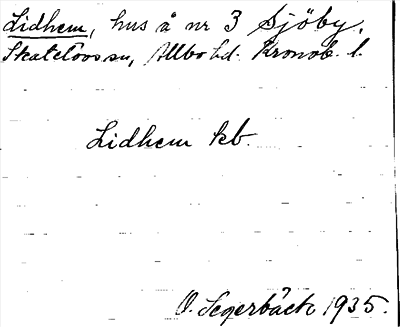 Lidhem, hus å nr 3 Sjöby,
Skatelövs sn, Allbo hd. Kronob. l.
Lidhem kb.
O. Segerbäck 1935.